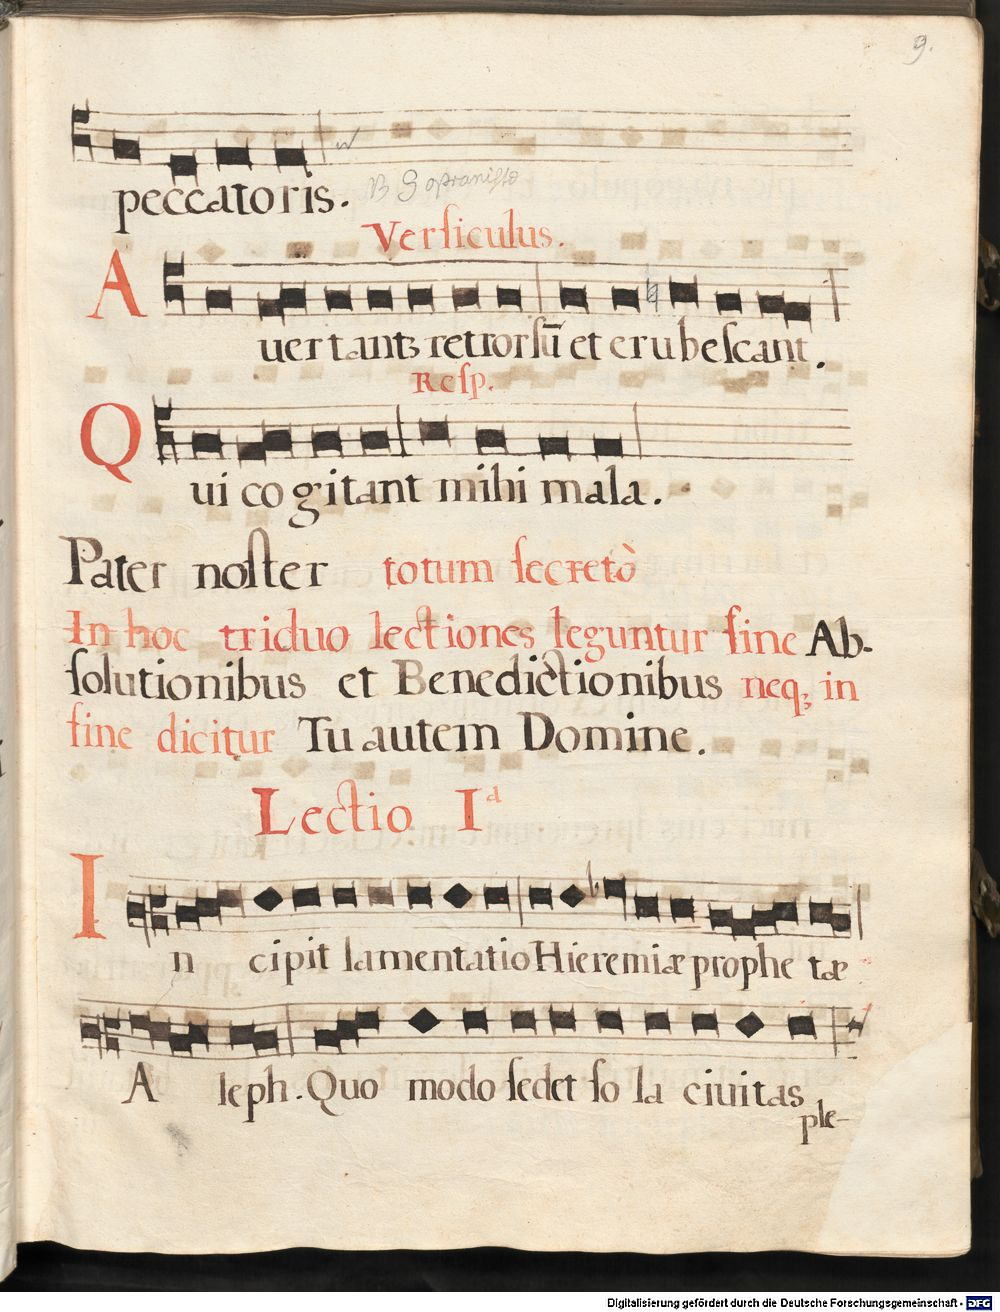 9.
peccatoris.
Versiculus.
A
uertantꝫ retrorsū et erubescant.
Resp.
Q
ui cogitant mihi mala.
Pater noster totum secretò
In hoc triduo lectiones leguntur sine Ab-
solutionibus et Benedictionibus neqꝫ in
fine dicitur Tu autem Domine.
Lectio Iª
I
n cipit lamentatio Hieremiæ prophe tæ
A leph. Quo modo sedet so la ciuitas
ple-
Digitalisierung gefördert durch die Deutsche Forschungsgemeinschaft - DFG